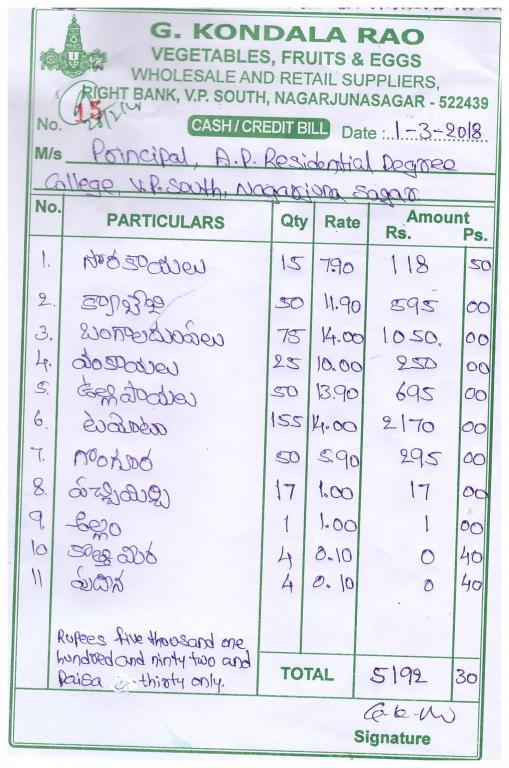 G. KONDALA RAO
VEGETABLES, FRUITS & EGGS
WHOLESALE AND RETAIL SUPPLIERS,
RIGHT BANK, V.P. SOUTH, NAGARJUNASAGAR - 522439
15
No. CASH / CREDIT BILL Date :..1-3-2018
M/s Principal, A.P. Residential Degree
College, V.P. South, Nagarjuna Sagar
No. PARTICULARS Qty Rate Amount Rs. Ps.
1. సొరకాయలు 15 7.90 118 50
2. క్యాబేజి 50 11.90 595 00
3. బంగాలదుంపలు 75 14.00 1050. 00
4. వంకాయలు 25 10.00 250 00
5. ఉల్లిపాయలు 50 13.90 695 00
6. టమోటా 155 14.00 2170 00
7. గోంగూర 50 5.90 295 00
8. పచ్చిమిర్చి 17 1.00 17 00
9. అల్లం 1 1.00 1 00
10 కొత్తిమీర 4 0.10 0 40
11 పుదిన 4 0.10 0 40
Rupees five thousand one
hundred and ninty two and
Paisa thirty only.
TOTAL 5192 30
Signature